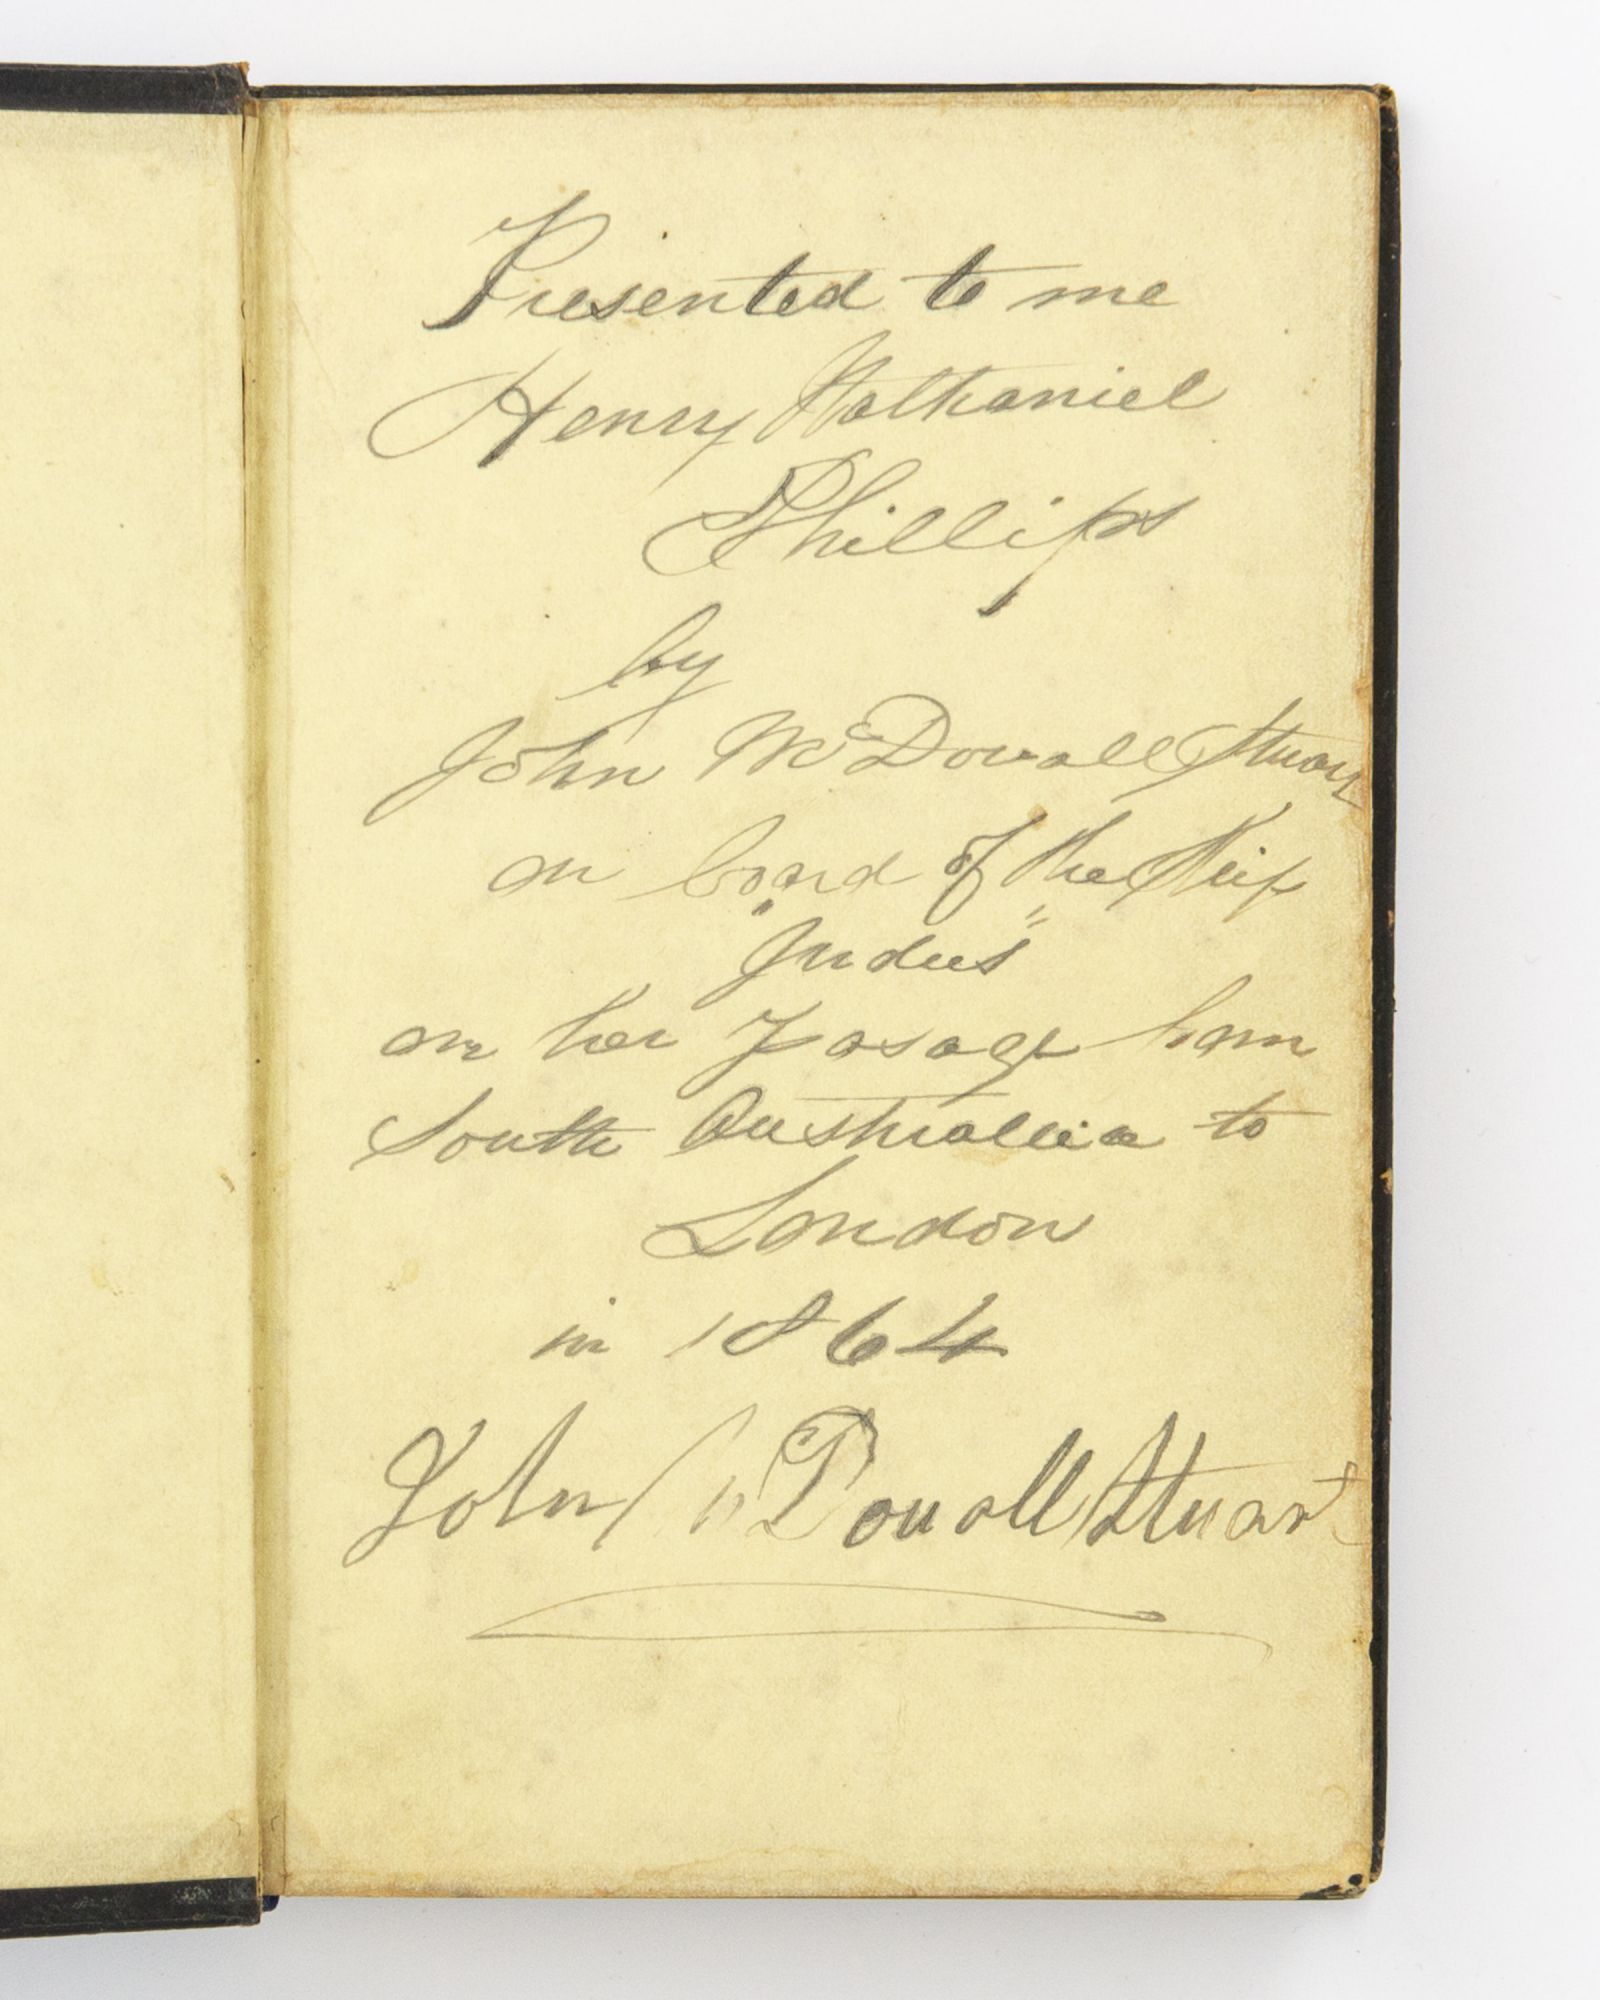 Presented to me
Henry Nathaniel
Phillips
by
John McDouall Stuart
on board of the Ship
"Indus"
on her Pasage hom
South Australlia to
London
in 1864
John McDouall Stuart